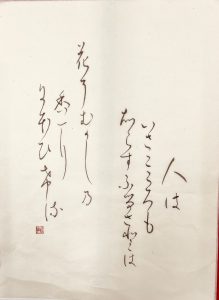 人は
いさこころも
志らすふるさとは
花そむかし乃
香に
にほひ希る